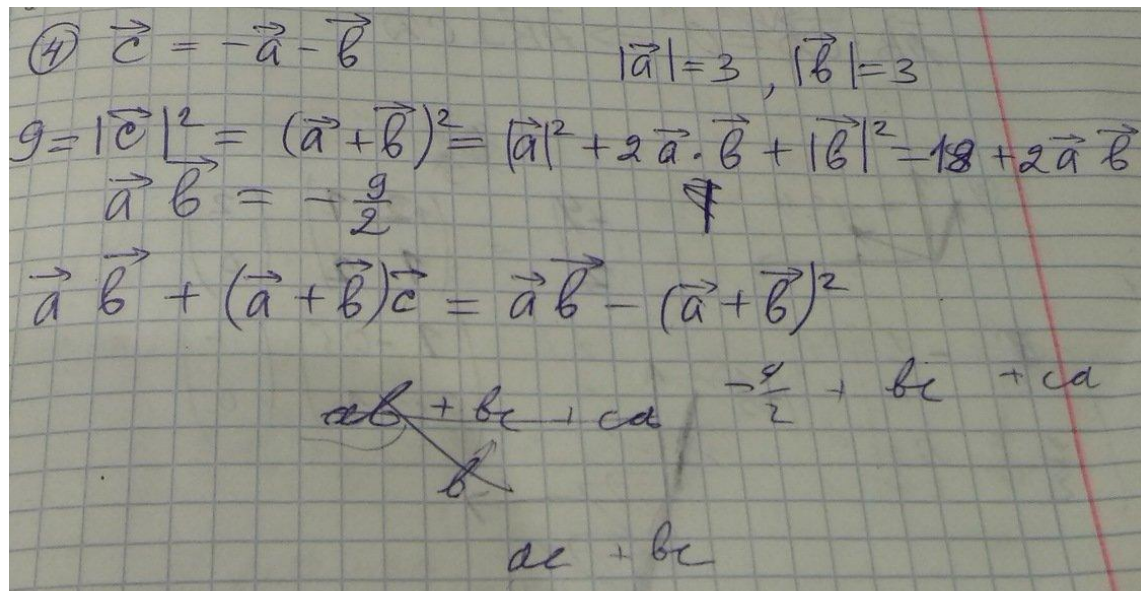 ④ c⃗ = -a⃗ - b⃗   |a⃗| = 3 , |b⃗| = 3
9 = |c⃗|² = (a⃗ + b⃗)² = |a⃗|² + 2a⃗ · b⃗ + |b⃗|² = 18 + 2a⃗ b⃗
a⃗ b⃗ = - 9/2
a⃗ b⃗ + (a⃗ + b⃗)c⃗ = a⃗ b⃗ - (a⃗ + b⃗)²
ab + bc + ca   - 9/2 + bc + ca
b
ac + bc